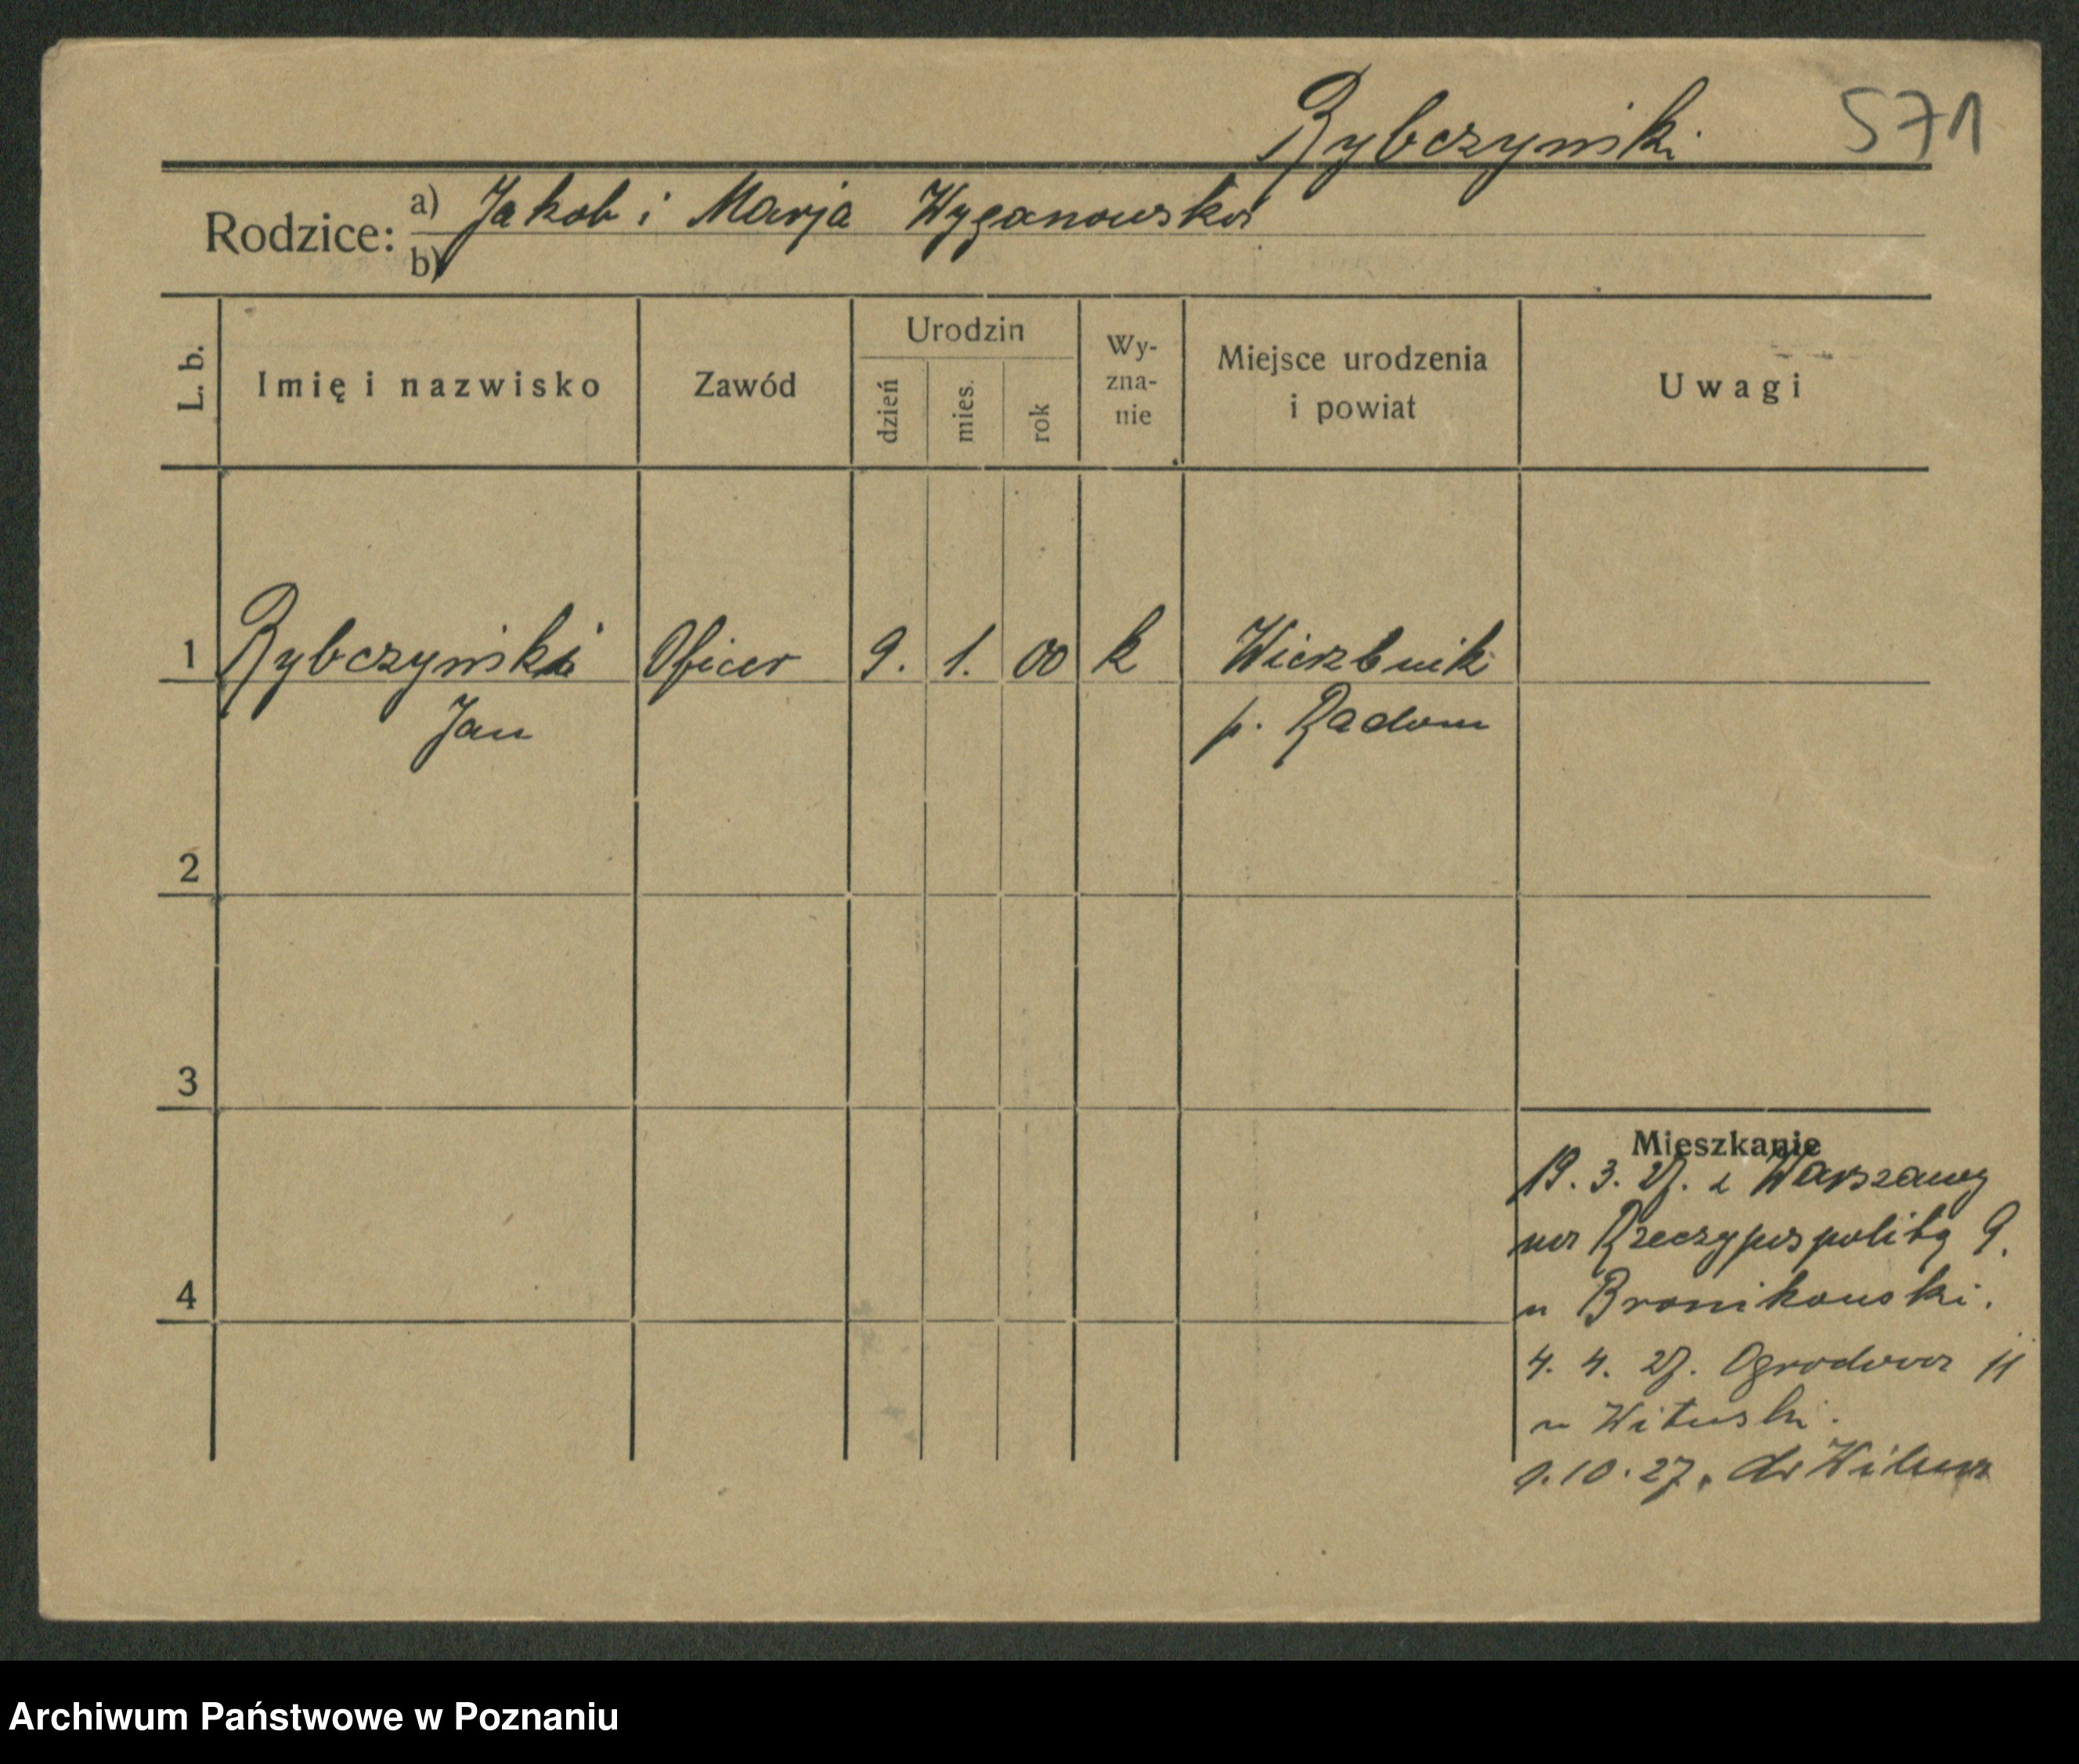 Rybczyński 571
Rodzice: a) Jakob i Marja Wyganowska
b)
L. b. Imię i nazwisko Zawód Urodzin dzień mies. rok Wy-zna-nie Miejsce urodzenia i powiat Uwagi
1 Rybczyński Oficer 9. 1. 00 k Wierzbnik
Jan p. Radom
2
3
4
Mieszkanie
19. 3. 27. z Warszawy
na Rzeczypospolitą 9.
u Bronikowski.
4. 4. 27. Ogrodowa 11
u Wituski.
9.10.27. do Wilna
Archiwum Państwowe w Poznaniu